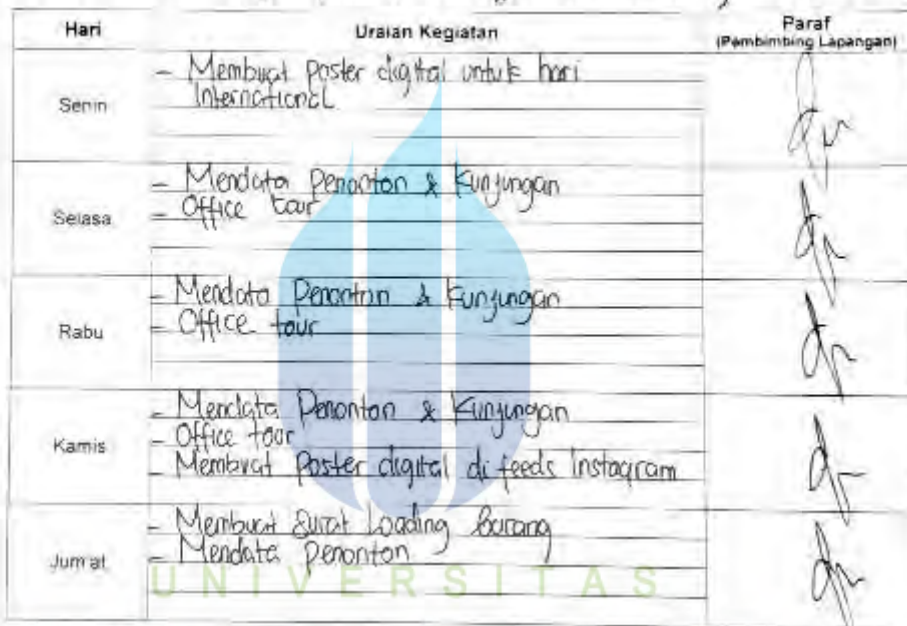 Hari Uraian Kegiatan Paraf
(Pembimbing Lapangan)
Senin
- Membuat poster digital untuk hari
International
Selasa
- Mendata Penonton & Kunjungan
- Office tour
Rabu
- Mendata Penonton & Kunjungan
- Office tour
Kamis
- Mendata Penonton & Kunjungan
- Office tour
- Membuat Poster digital di feeds instagram
Jum'at
- Membuat Surat Loading barang
- Mendata penonton
UNIVERSITAS